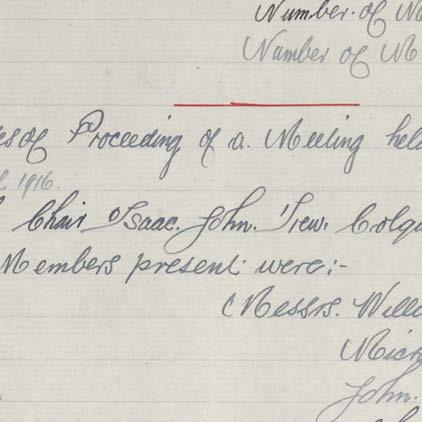 Number. of M
Number of M
es of Proceeding of a. Meeting hel
1916.
Chair Isaac. John. Trew. Colqu
Members present were:-
Messrs. Willi
Mich
John.